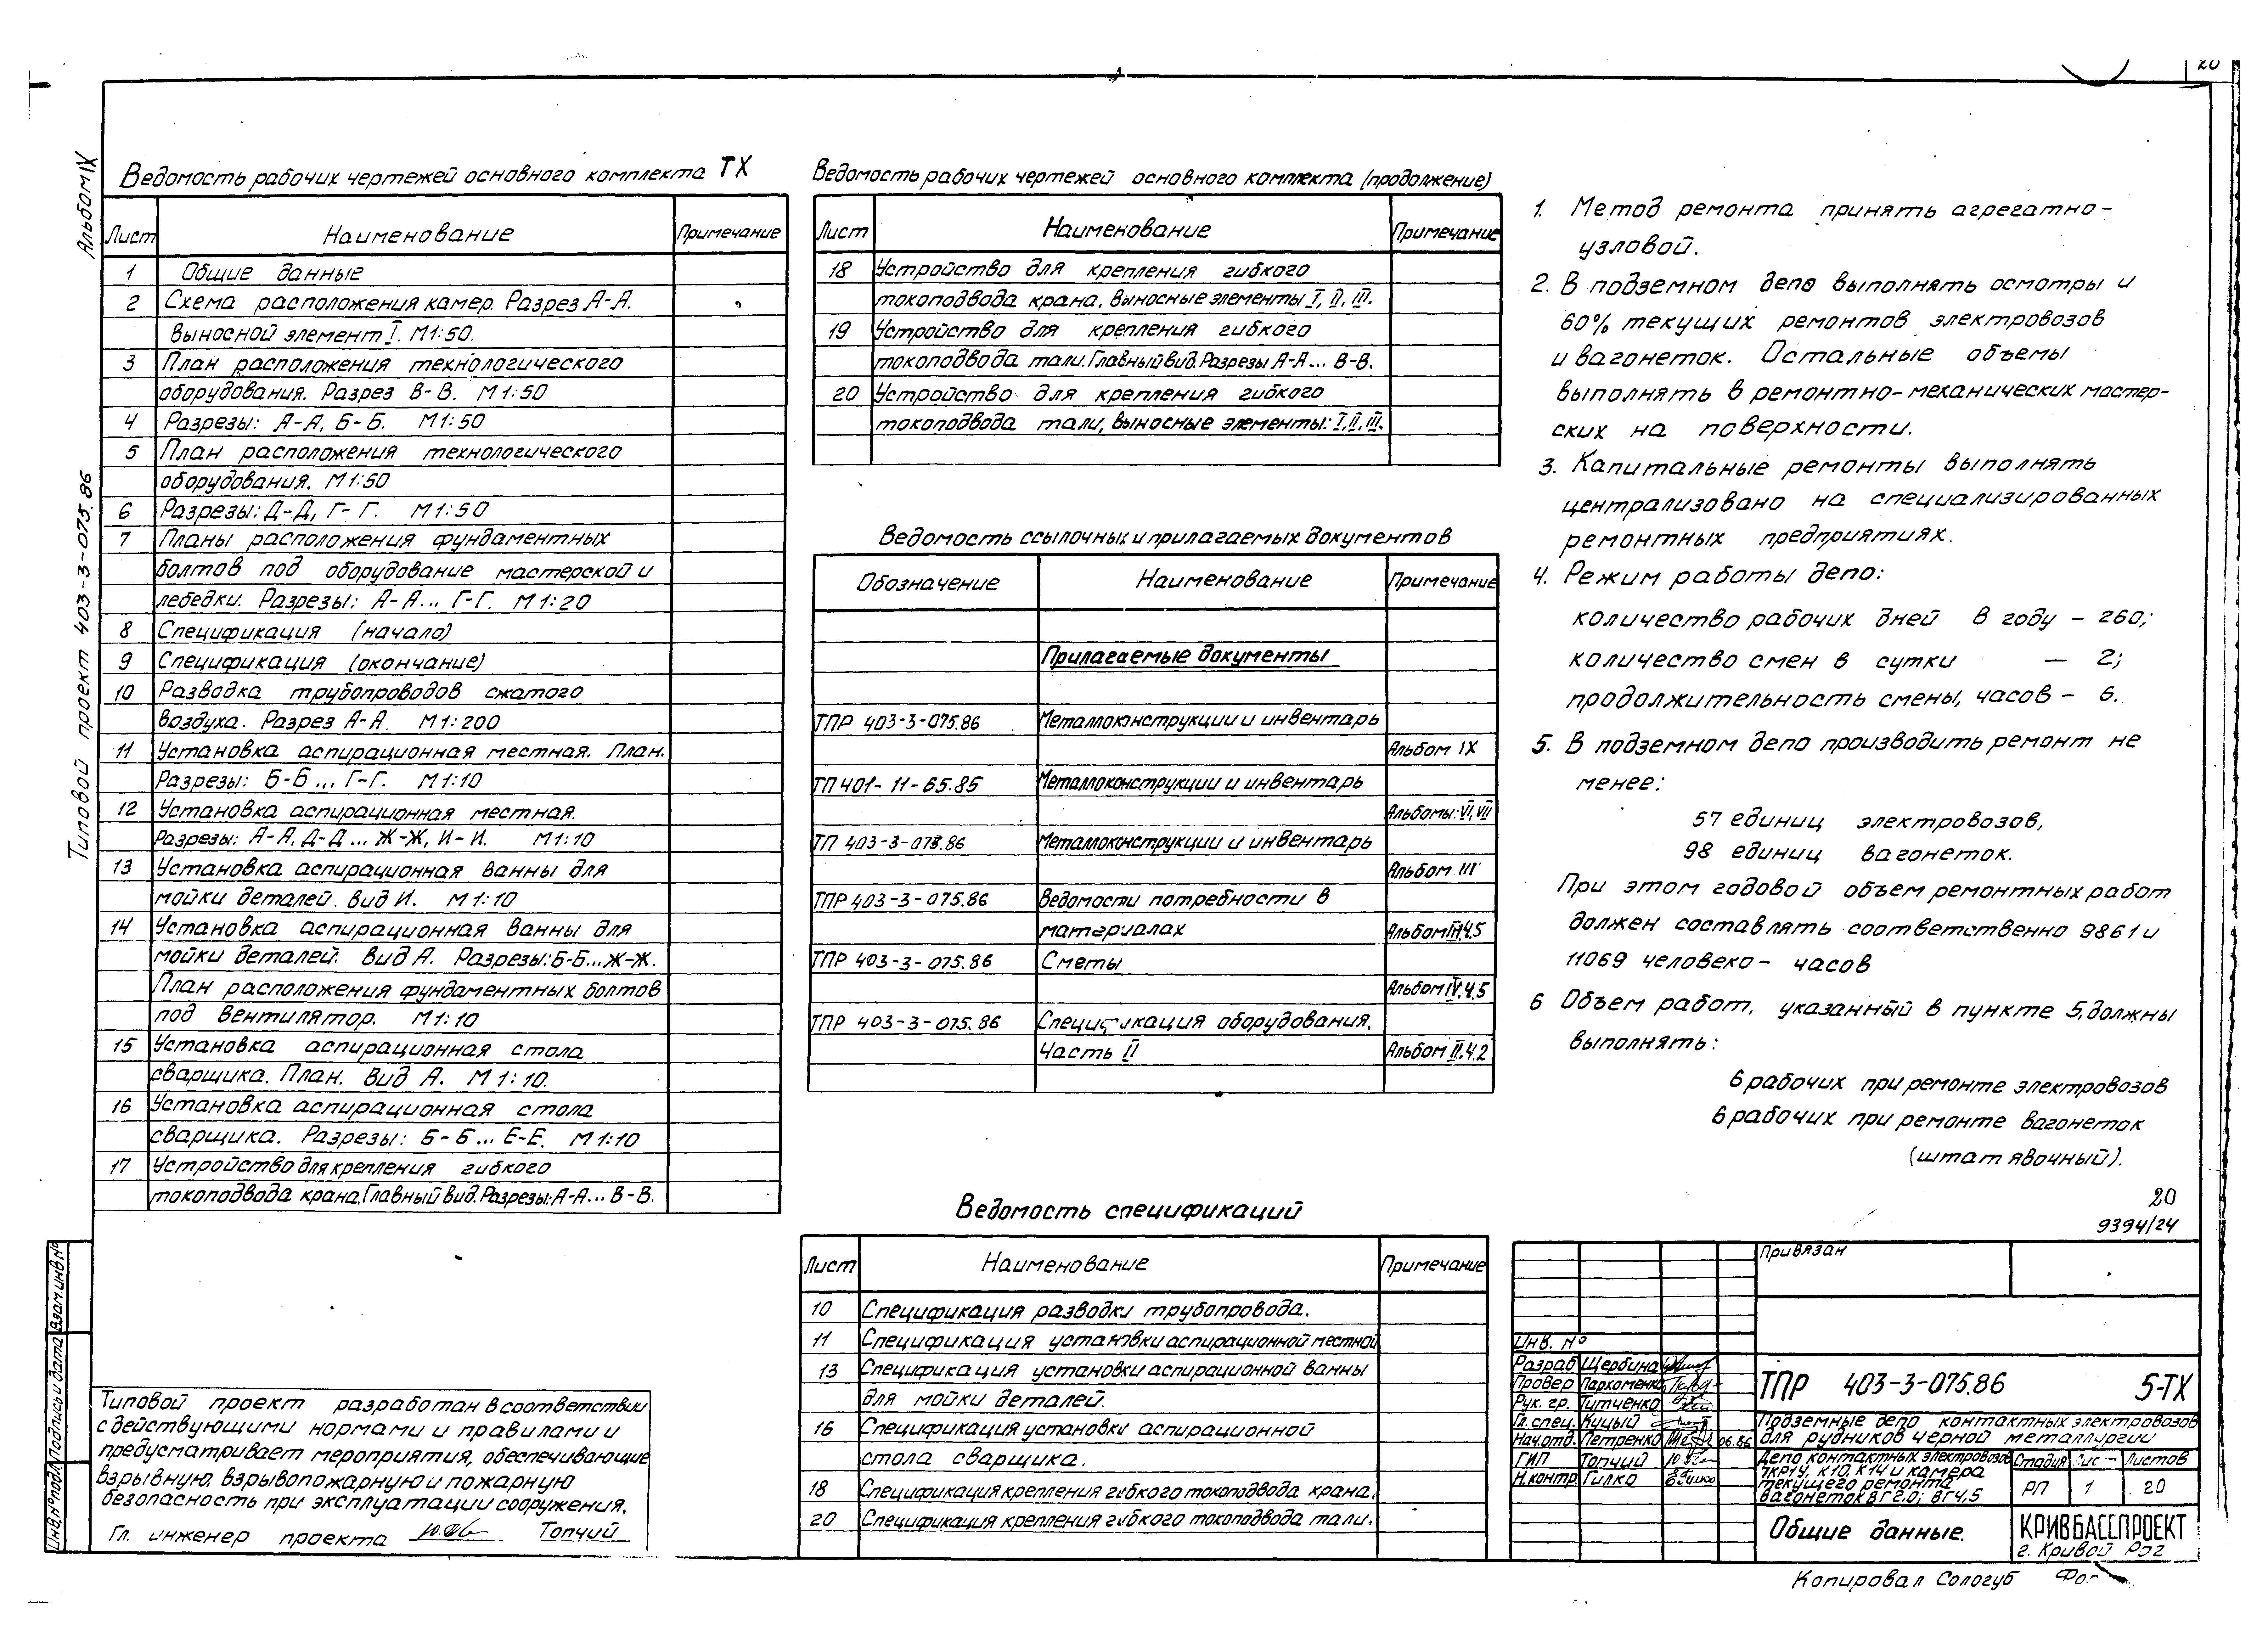 20
Альбом IX
Типовой проект 403-3-075.86
Ведомость рабочих чертежей основного комплекта ТХ
Лист Наименование Примечание
1 Общие данные
2 Схема расположения камер. Разрез А-А.
Выносной элемент I. М1:50.
3 План расположения технологического
оборудования. Разрез В-В. М1:50
4 Разрезы: А-А, Б-Б. М1:50
5 План расположения технологического
оборудования. М1:50
6 Разрезы: Д-Д, Г-Г. М1:50
7 Планы расположения фундаментных
болтов под оборудование мастерской и
лебедки. Разрезы: А-А... Г-Г. М1:20
8 Спецификация (начало)
9 Спецификация (окончание)
10 Разводка трубопроводов сжатого
воздуха. Разрез А-А. М1:200
11 Установка аспирационная местная. План.
Разрезы: Б-Б... Г-Г. М1:10
12 Установка аспирационная местная.
Разрезы: А-А, Д-Д... Ж-Ж, И-И. М1:10
13 Установка аспирационная ванны для
мойки деталей. Вид И. М1:10
14 Установка аспирационная ванны для
мойки деталей. Вид А. Разрезы: Б-Б...Ж-Ж.
План расположения фундаментных болтов
под вентилятор. М1:10
15 Установка аспирационная стола
сварщика. План. Вид А. М1:10.
16 Установка аспирационная стола
сварщика. Разрезы: Б-Б... Е-Е. М1:10
17 Устройство для крепления гибкого
токоподвода крана. Главный вид. Разрезы: А-А... В-В.
Ведомость рабочих чертежей основного комплекта (продолжение)
Лист Наименование Примечание
18 Устройство для крепления гибкого
токоподвода крана, выносные элементы I, II, III.
19 Устройство для крепления гибкого
токоподвода тали. Главный вид. Разрезы А-А... В-В.
20 Устройство для крепления гибкого
токоподвода тали, выносные элементы: I, II, III.
Ведомость ссылочных и прилагаемых документов
Обозначение Наименование Примечание
Прилагаемые документы
ТПР 403-3-075.86 Металлоконструкции и инвентарь
Альбом IX
ТП 401-11-65.85 Металлоконструкции и инвентарь
Альбомы: VI, VII
ТП 403-3-073.86 Металлоконструкции и инвентарь
Альбом III
ТПР 403-3-075.86 Ведомости потребности в
материалах Альбом III.ч.5
ТПР 403-3-075.86 Сметы
Альбом IV.ч.5
ТПР 403-3-075.86 Спецификация оборудования.
Часть II Альбом II.ч.2
Ведомость спецификаций
Лист Наименование Примечание
10 Спецификация разводки трубопровода.
11 Спецификация установки аспирационной местной
13 Спецификация установки аспирационной ванны
для мойки деталей.
16 Спецификация установки аспирационной
стола сварщика.
18 Спецификация крепления гибкого токоподвода крана.
20 Спецификация крепления гибкого токоподвода тали.
1. Метод ремонта принять агрегатно-
узловой.
2. В подземном депо выполнять осмотры и
60% текущих ремонтов электровозов
и вагонеток. Остальные объемы
выполнять в ремонтно-механических мастер-
ских на поверхности.
3. Капитальные ремонты выполнять
централизовано на специализированных
ремонтных предприятиях.
4. Режим работы депо:
количество рабочих дней в году – 260;
количество смен в сутки – 2;
продолжительность смены, часов – 6.
5. В подземном депо производить ремонт не
менее:
57 единиц электровозов,
98 единиц вагонеток.
При этом годовой объем ремонтных работ
должен составлять соответственно 9861 и
11069 человеко-часов
6 Объем работ, указанный в пункте 5, должны
выполнять:
6 рабочих при ремонте электровозов
6 рабочих при ремонте вагонеток
(штат явочный).
20
9394/24
Типовой проект разработан в соответствии
с действующими нормами и правилами и
предусматривает мероприятия, обеспечивающие
взрывную, взрывопожарную и пожарную
безопасность при эксплуатации сооружения.
Гл. инженер проекта Топчий
Инв.№ подл. Подпись и дата Взам.инв.№
Привязан
Инв. №
Разраб Щербина
Провер Пархоменко
Рук. гр. Титченко
Гл. спец. Куцый
Нач.отд. Петренко 06.86
ГИП Топчий
Н.контр. Гилко
ТПР 403-3-075.86 5-ТХ
Подземные депо контактных электровозов
для рудников черной металлургии
Депо контактных электровозов
7КР1У, К10, К14 и камера
текущего ремонта
вагонеток ВГ2,0; ВГ4,5
Стадия Лист Листов
РП 1 20
Общие данные.
КРИВБАССПРОЕКТ
г. Кривой Рог
Копировал Сологуб